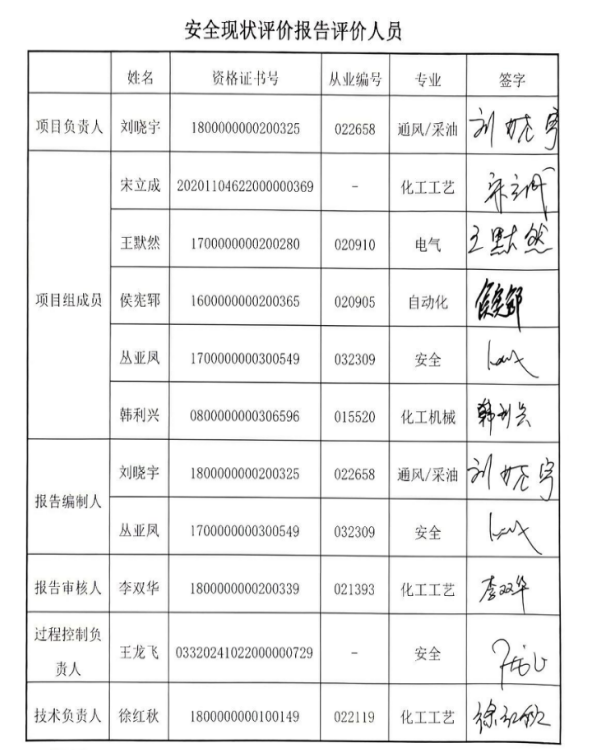 安全现状评价报告评价人员
姓名 资格证书号 从业编号 专业 签字
项目负责人 刘晓宇 1800000000200325 022658 通风/采油 刘晓宇
项目组成员
宋立成 20201104622000000369 - 化工工艺 宋立成
王默然 1700000000200280 020910 电气 王默然
侯宪郓 1600000000200365 020905 自动化 侯宪郓
丛亚凤 1700000000300549 032309 安全
韩利兴 0800000000306596 015520 化工机械 韩利兴
报告编制人
刘晓宇 1800000000200325 022658 通风/采油 刘晓宇
丛亚凤 1700000000300549 032309 安全
报告审核人 李双华 1800000000200339 021393 化工工艺 李双华
过程控制负
责人
王龙飞 03320241022000000729 - 安全
技术负责人 徐红秋 1800000000100149 022119 化工工艺 徐红秋